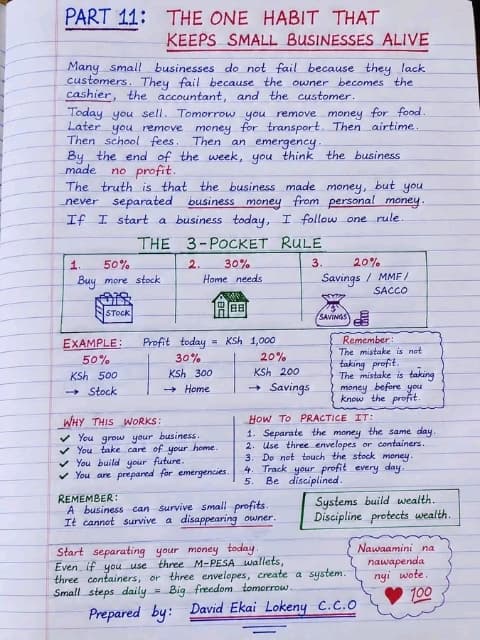 PART 11: THE ONE HABIT THAT
KEEPS SMALL BUSINESSES ALIVE
Many small businesses do not fail because they lack
customers. They fail because the owner becomes the
cashier, the accountant, and the customer.
Today you sell. Tomorrow you remove money for food.
Later you remove money for transport. Then airtime.
Then school fees. Then an emergency.
By the end of the week, you think the business
made no profit.
The truth is that the business made money, but you
never separated business money from personal money.
If I start a business today, I follow one rule.
THE 3-POCKET RULE
1. 50%
Buy more stock
STOCK
2. 30%
Home needs
3. 20%
Savings / MMF/
SACCO
$
SAVINGS
EXAMPLE: Profit today = KSh 1,000
50%
KSh 500
→ Stock
30%
KSh 300
→ Home
20%
KSh 200
→ Savings
Remember:
The mistake is not
taking profit.
The mistake is taking
money before you
know the profit.
WHY THIS WORKS:
✓ You grow your business.
✓ You take care of your home.
✓ You build your future.
✓ You are prepared for emergencies.
HOW TO PRACTICE IT:
1. Separate the money the same day.
2. Use three envelopes or containers.
3. Do not touch the stock money.
4. Track your profit every day.
5. Be disciplined.
REMEMBER:
A business can survive small profits.
It cannot survive a disappearing owner.
Systems build wealth.
Discipline protects wealth.
Start separating your money today.
Even if you use three M-PESA wallets,
three containers, or three envelopes, create a system.
Small steps daily = Big freedom tomorrow.
Nawaamini na
nawapenda
nyi wote.
❤ 100
Prepared by: David Ekai Lokeny C.C.O